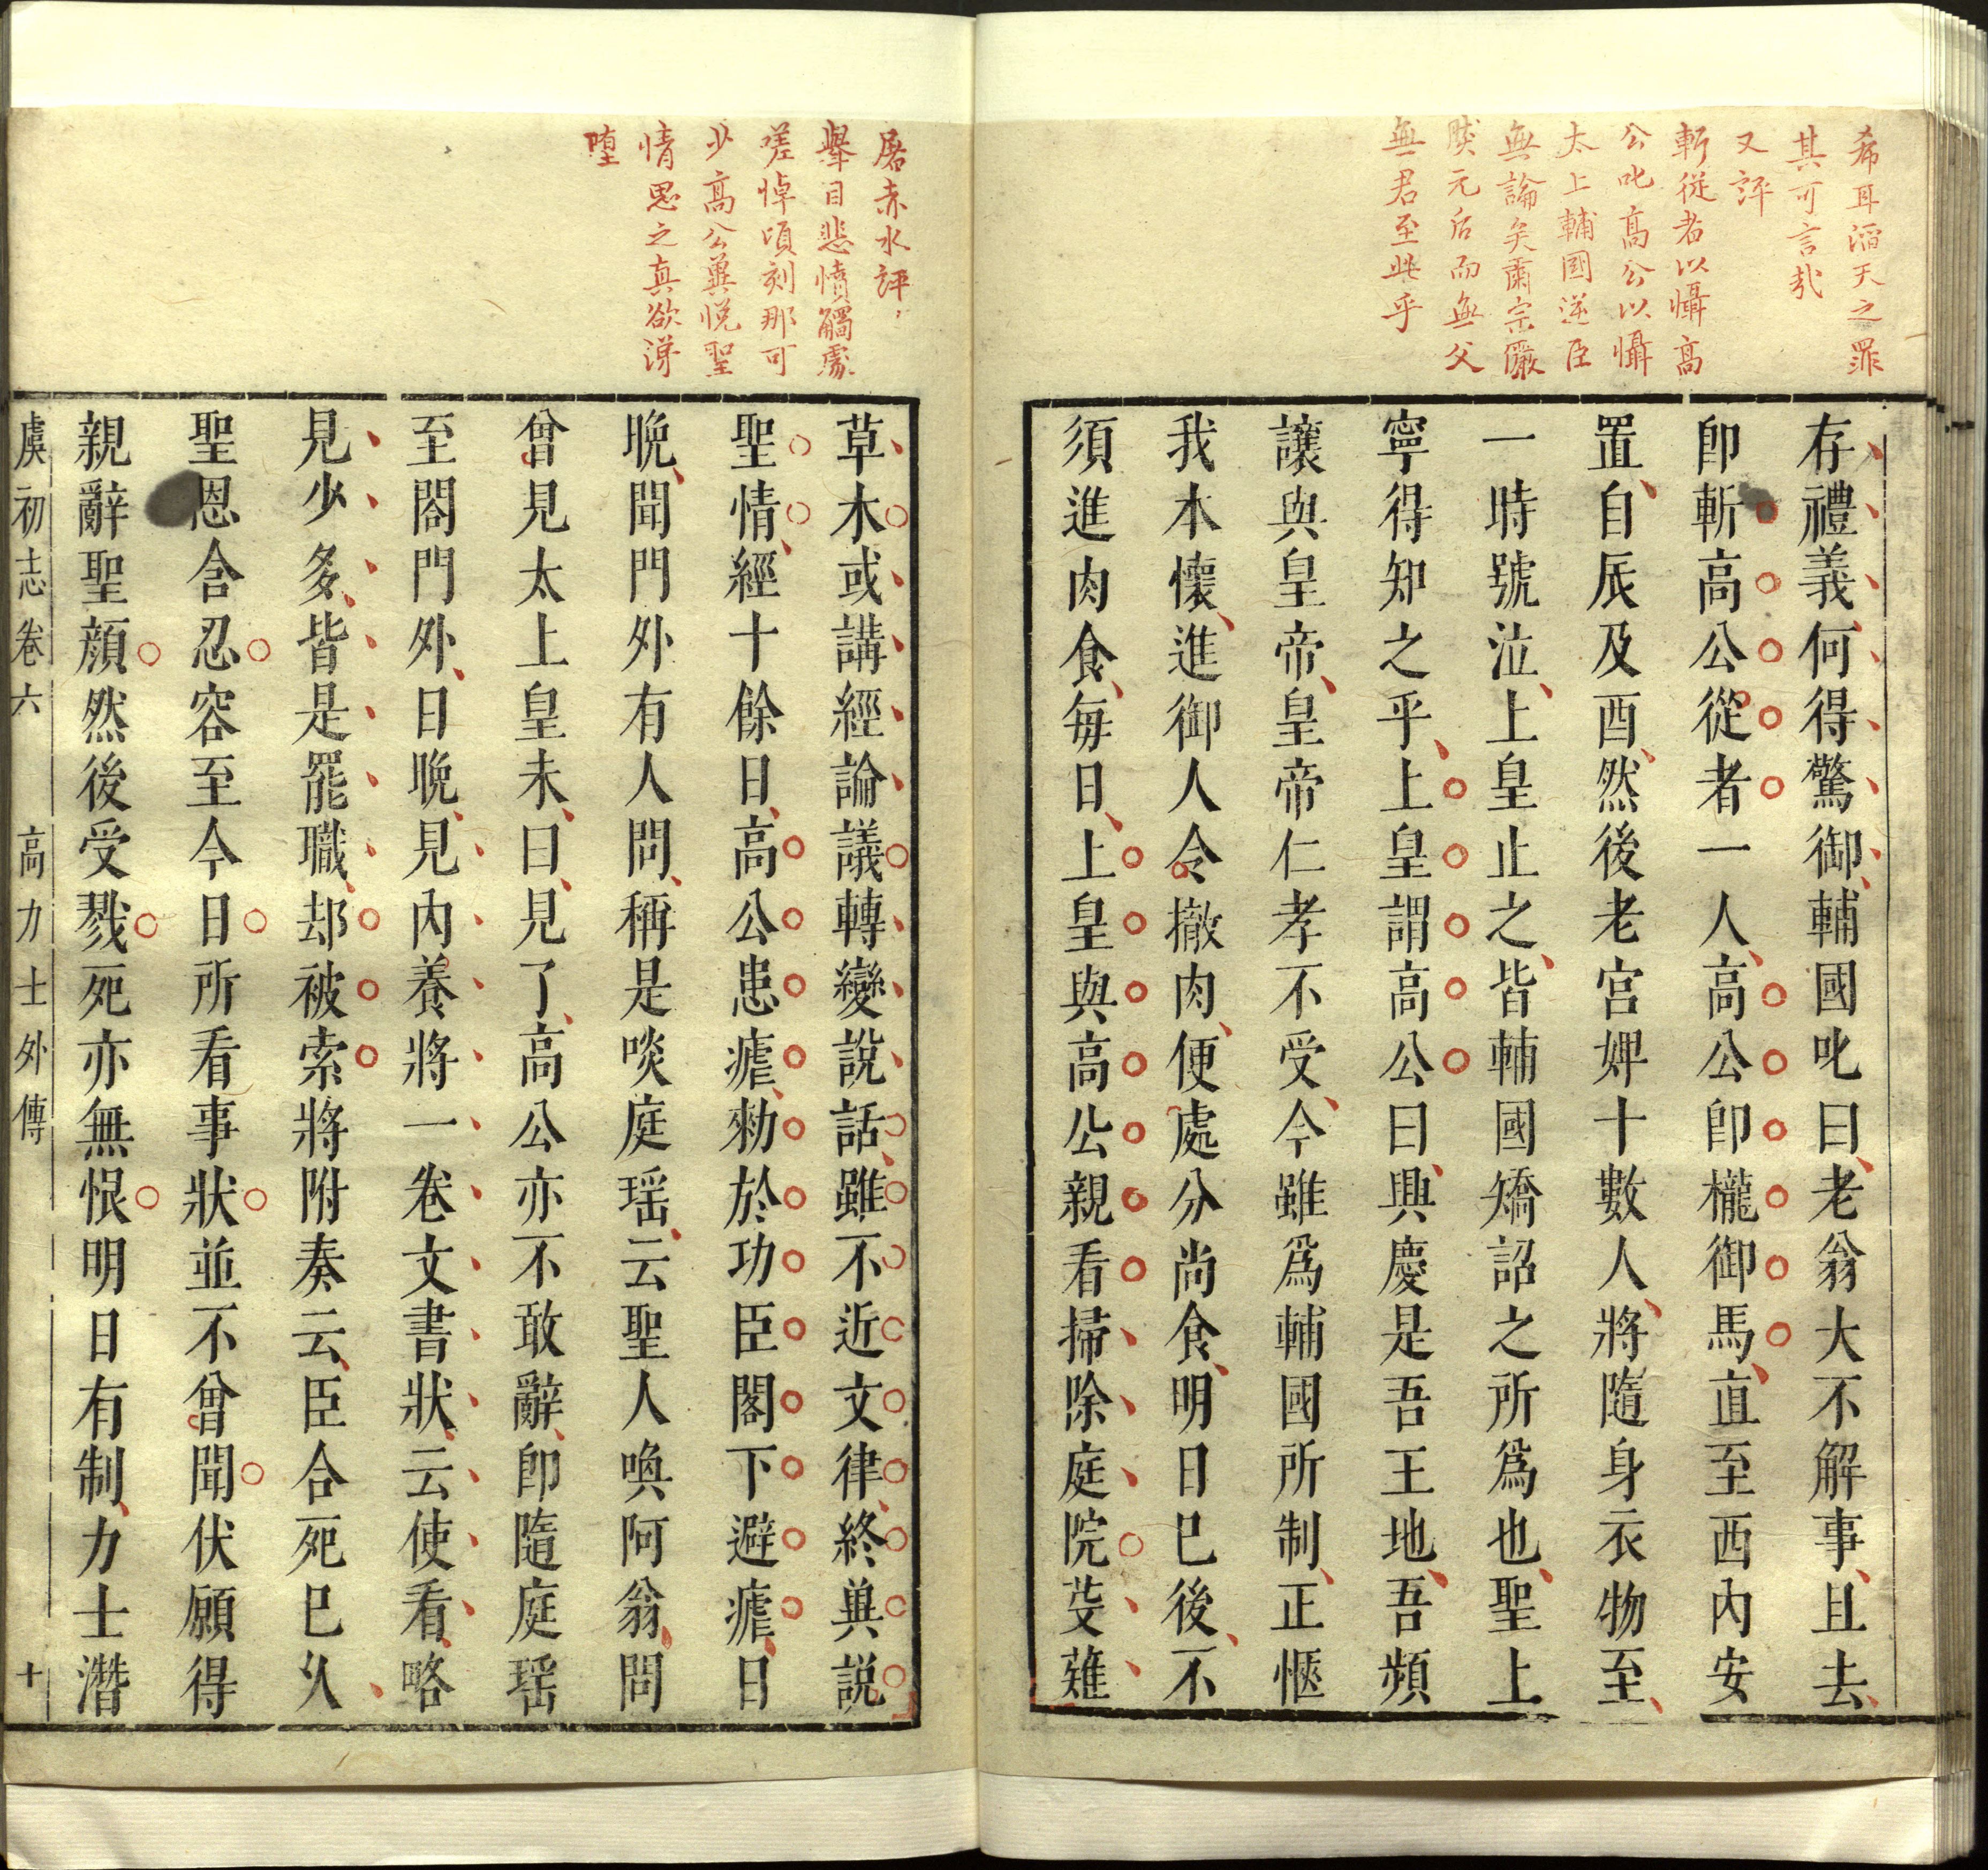 希耳滔天之罪
其可言哉
又評
斬從者以懾高
公叱高公以懾
太上輔國逆臣
無論矣肅宗儼
然元后而無父
無君至此乎
存禮義何得驚御輔國叱曰老翁大不解事且去
卽斬高公從者一人高公卽櫳御馬直至西內安
置自辰及酉然後老宮婢十數人將隨身衣物至
一時號泣上皇止之皆輔國矯詔之所爲也聖上
寧得知之乎上皇謂高公曰興慶是吾王地吾頻
讓與皇帝皇帝仁孝不受今雖爲輔國所制正愜
我本懷進御人令撤肉便處分尚食明日巳後不
須進肉食每日上皇與高公親看掃除庭院芟薙
屠赤水評
舉目悲憤觸處
嗟悼頃刻那可
少高公冀悅聖
情思之真欲淚
墮
草木或講經論議轉變說話雖不近文律終兾説
聖情經十餘日高公患瘧勑於功臣閣下避瘧日
晚聞門外有人問稱是啖庭瑶云聖人喚阿翁問
曾見太上皇未曰見了高公亦不敢辭卽隨庭瑶
至閤門外日晚見內養將一卷文書狀云使看略
見少多皆是罷職却被索將附奏云臣合死巳久
聖恩含忍容至今日所看事狀並不曾聞伏願得
親辭聖顏然後受戮死亦無恨明日有制力士潛
虞初志卷六 高力士外傳 十